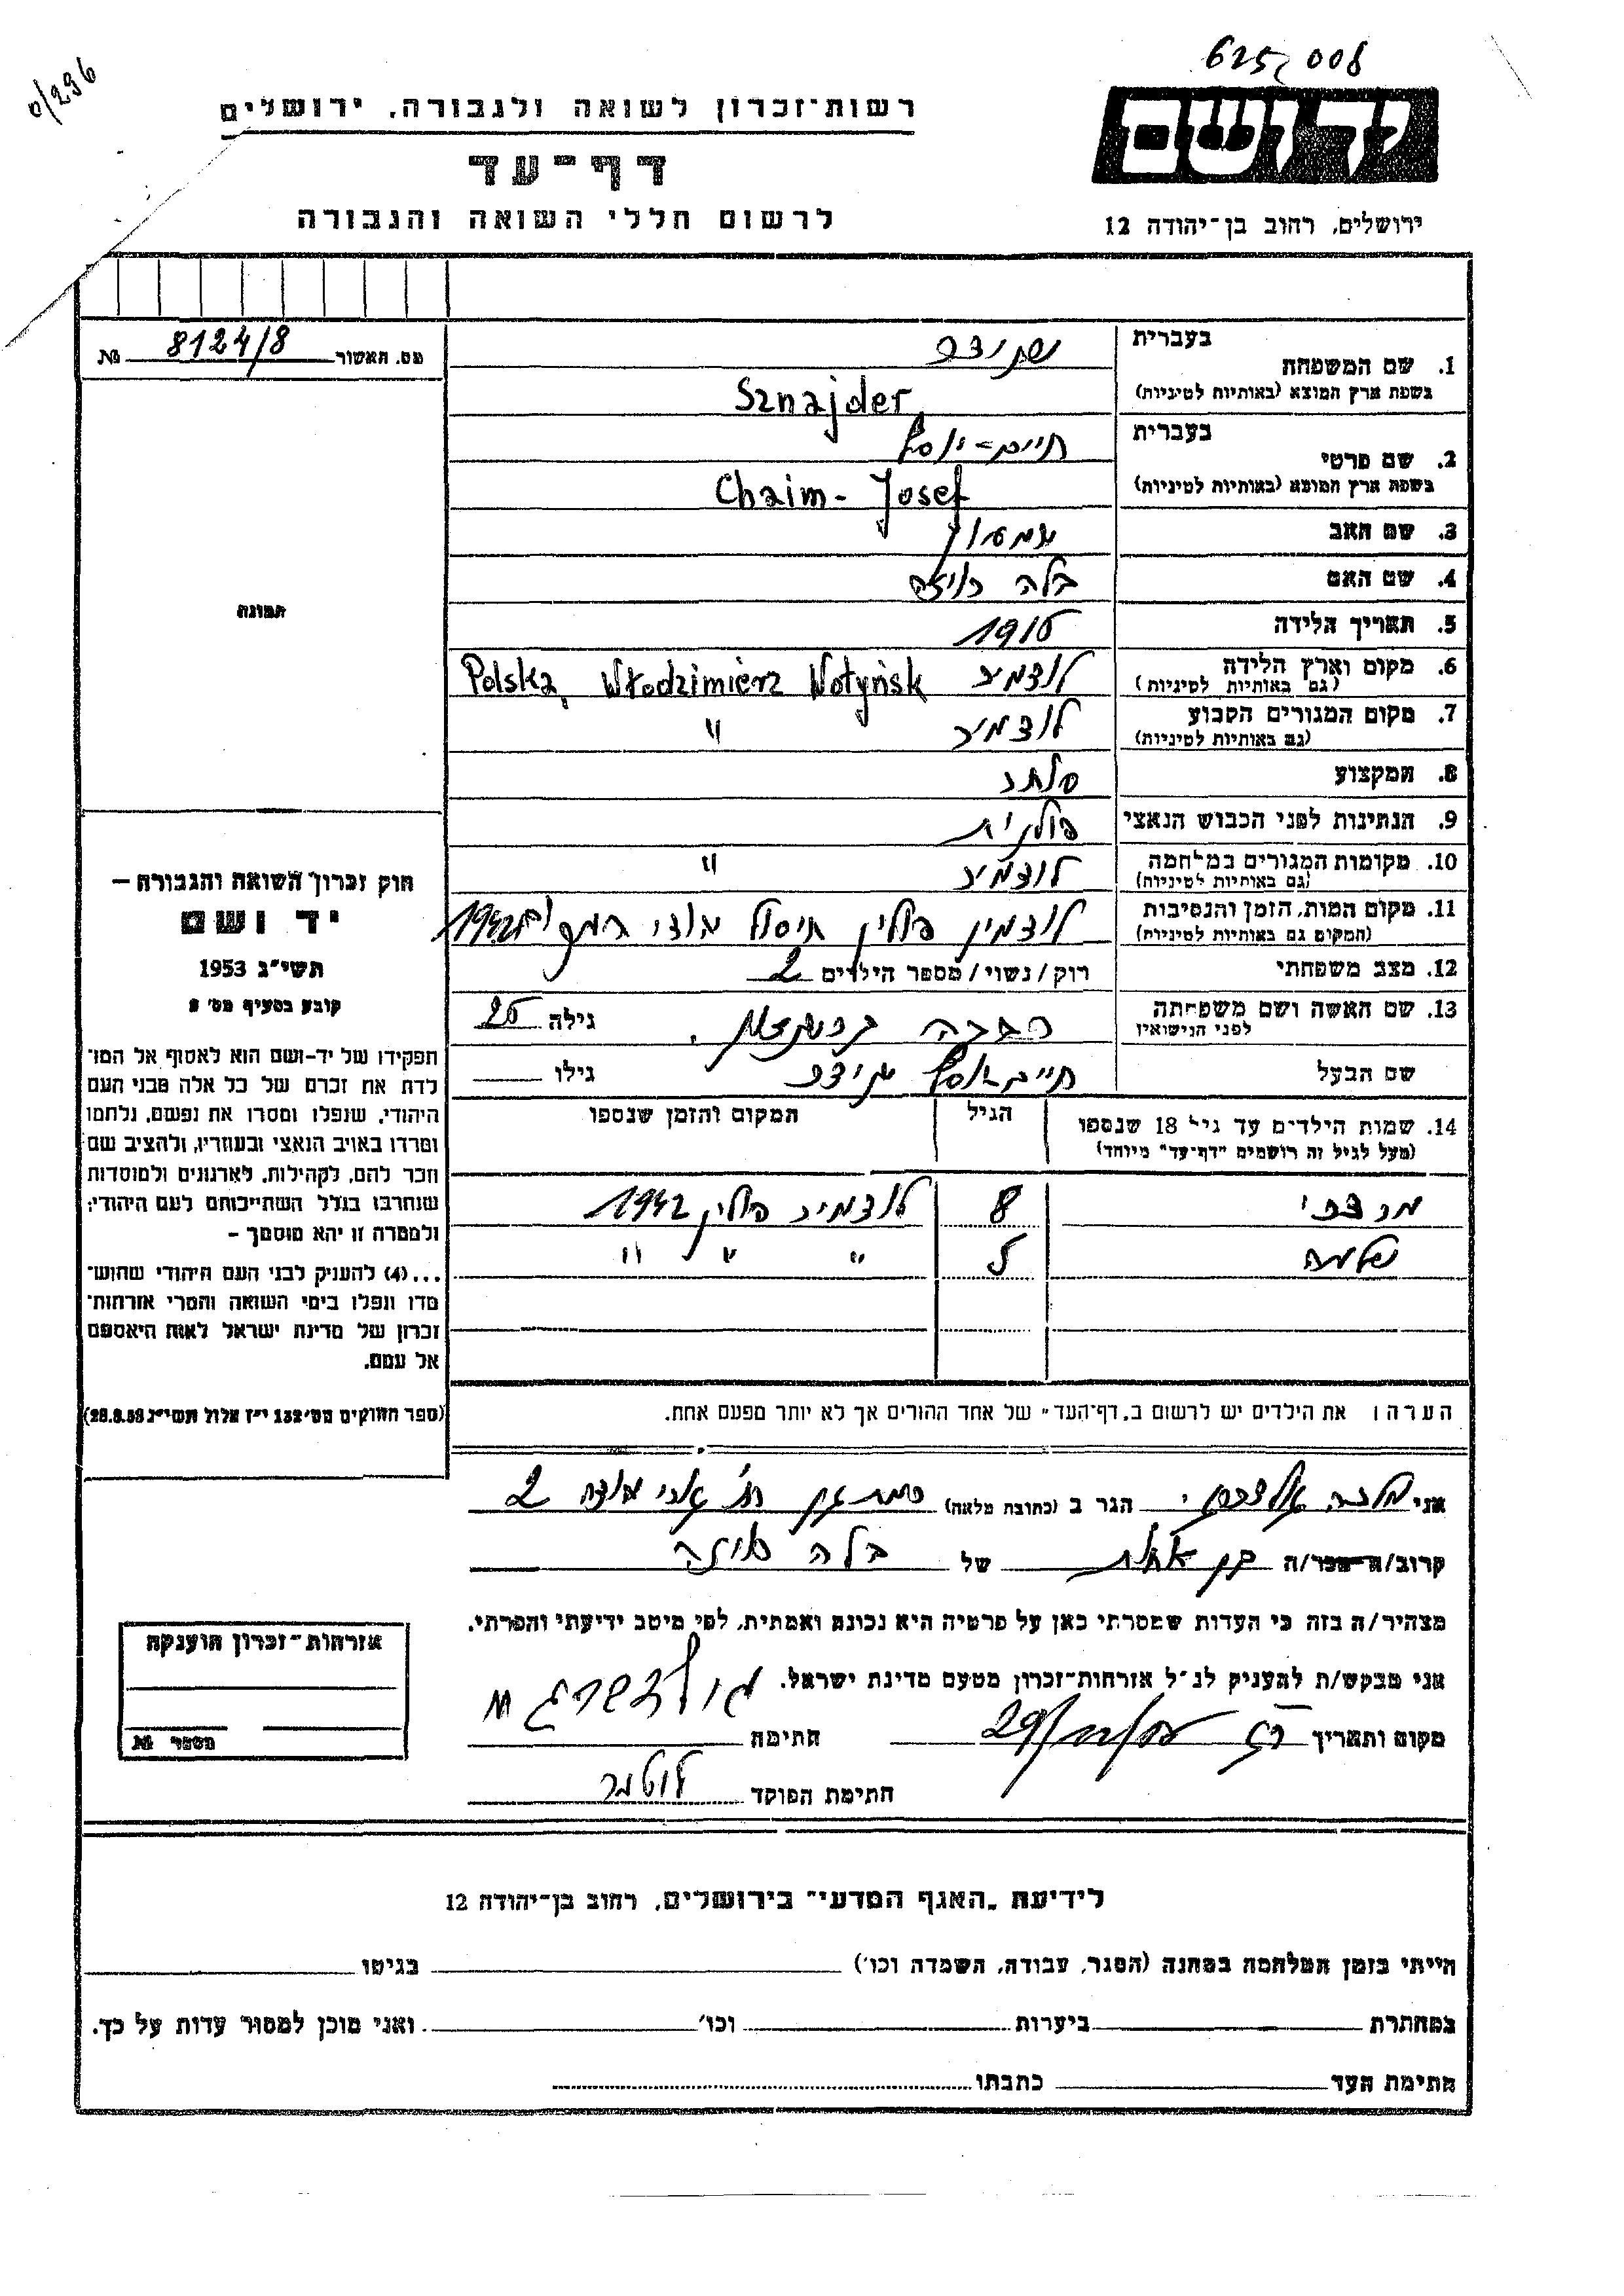 625/008
0/296
רשות־זכרון לשואה ולגבורה, ירושלים
יד ושם
דף־עד
לרשום חללי השואה והגבורה
ירושלים, רחוב בן־יהודה 12
מס. האשור 8124/8 №
1. שם המשפחה בעברית שניידר
בשפת ארץ המוצא (באותיות לטיניות) Sznajder
2. שם פרטי בעברית חיים-יוסף
בשפת ארץ המוצא (באותיות לטיניות) Chaim-Josef
3. שם האב שמעון
4. שם האם בלה
5. תאריך הלידה 1910
6. מקום וארץ הלידה (גם באותיות לטיניות) לודמיר Polska, Włodzimierz Wołyńsk
7. מקום המגורים הקבוע (גם באותיות לטיניות) לודמיר "
8. המקצוע סוחר
9. הנתינות לפני הכבוש הנאצי פולנית
10. מקומות המגורים במלחמה (גם באותיות לטיניות) לודמיר "
11. מקום המות, הזמן והנסיבות (המקום גם באותיות לטיניות) לודמיר פולין חיסול 1942
12. מצב משפחתי רוק/נשוי/מספר הילדים 2
13. שם האשה ושם משפחתה לפני הנישואין גילה
שם הבעל חיים יוסף שניידר גילו
14. שמות הילדים עד גיל 18 שנספו הגיל המקום והזמן שנספו
(מעל לגיל זה רושמים "דף־עד" מיוחד)
מרדכי 8 לודמיר פולין 1942
שלמה 5 " " "
הערה: את הילדים יש לרשום ב„דף־העד" של אחד ההורים אך לא יותר מפעם אחת.
תמונה
חוק זכרון השואה והגבורה —
יד ושם
תשי"ג 1953
קובע בסעיף מס' 2
תפקידו של יד-ושם הוא לאסוף אל המו־
לדת את זכרם של כל אלה מבני העם
היהודי, שנפלו ומסרו את נפשם, נלחמו
ומרדו באויב הנאצי ובעוזריו, ולהציב שם
וזכר להם, לקהילות, לארגונים ולמוסדות
שנחרבו בגלל השתייכותם לעם היהודי;
ולמטרה זו יהא מוסמך –
...(4) להעניק לבני העם היהודי שהוש־
מדו ונפלו בימי השואה והמרי אזרחות־
זכרון של מדינת ישראל לאות היאספם
אל עמם.
(ספר החוקים מס' 132 י"ז אלול תשי"ג 28.8.53)
אני הגר ב (כתובת מלאה) רמת גן רח' 2
קרוב/ה מכר/ה בן אחות של בלה
מצהיר/ה בזה כי העדות שמסרתי כאן על פרטיה היא נכונה ואמתית, לפי מיטב ידיעתי והכרתי.
אני מבקש/ת להעניק לנ"ל אזרחות־זכרון מטעם מדינת ישראל.
מקום ותאריך חתימה
חתימת הפוקד
אזרחות־זכרון הוענקה
מספר №
לידיעת „האגף המדעי" בירושלים, רחוב בן־יהודה 12
הייתי בזמן המלחמה במחנה (הסגר, עבודה, השמדה וכו') בגיטו
במחתרת ביערות וכו' ואני מוכן למסור עדות על כך.
חתימת העד כתבתו